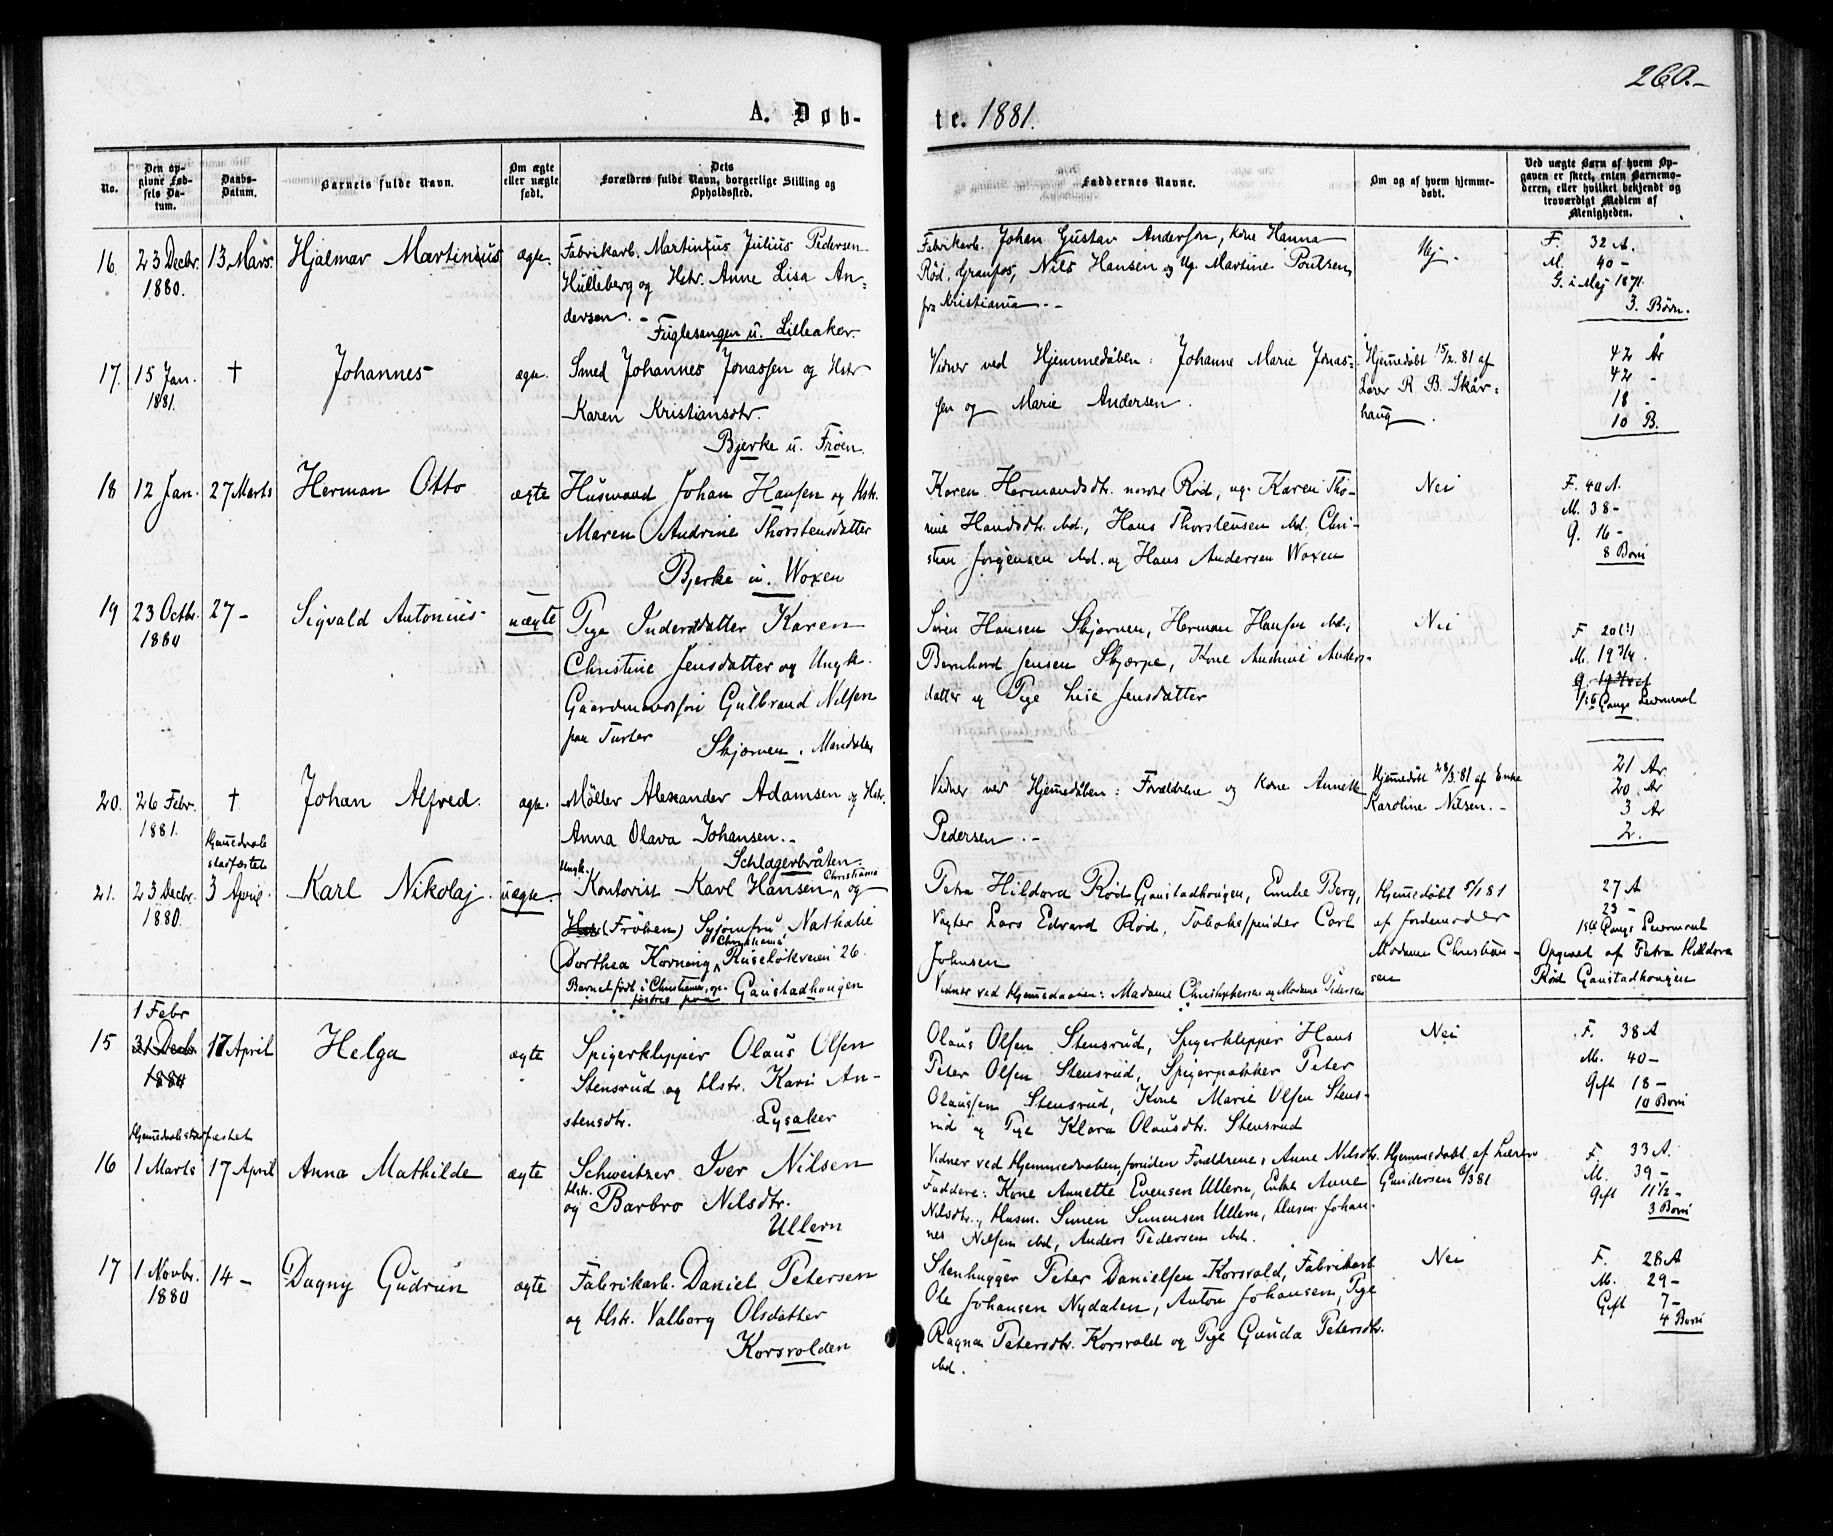 260.-
A. Døb-
te. 1881.
No.
Den op-
givne Fød-
sels Da-
tum.
Daabs-
Datum.
Barnets fulde Navn.
Om ægte
eller uægte
født.
Dets
Forældres fulde Navn, borgerlige Stilling og
Opholdssted.
Faddernes Navne.
Om og af hvem hjemme-
døbt.
Ved uægte Børn af hvem Op-
gaven er skeet, enten Barnemo-
deren, eller hvilket bekjendt og
troværdigt Medlem af
Menigheden.
16. 23 Decbr.
1880.
13 Mars.
Hjalmar Martinius
ægte.
Fabrikarb. Martinius Julius Pedersen
Hulleberg og Hstr. Anne Lisa An-
dersen. -
Fuglesangen u. Lilleaker.
Fabrikarb. Johan Gustav Andersen, Kone Hanna
Rød, Granfos, Nils Hansen og Ug. Martine Poulsen,
fra Kristiania. -
Nej.
F. 32 A.
M. 40 -
G. i Mej 1871.
3. Børn.
17. 15 Jan.
1881.
†
Johannes
ægte.
Smed Johannes Jonassen og Hstr
Karen Kristiansdtr.
Bjerke u. Frøen.
Vidner ved Hjemmedåben: Johanne Marie Jonas-
sen og Marie Andersen.
Hjemmedøbt 15/2. 81 af
Lærer R. B. Skår-
haug.
42 År
42 -
18 -
10 B.
18 12 Jan.
27 Marts
Herman Otto
ægte
Husmand Johan Hansen og Hst.
Maren Andrine Thorstensdatter
Bjerke u. Woxen
Karen Hermandsdtr. nordre Rød, ug. Karen Tho-
rine Handsdtr. ibd., Hans Thorstensen ibd. Chri-
stian Jørgensen ibd. og Hans Andersen Woxen
Nei
F. 40 A.
M. 38 -
G. 16 -
8 Børn
19 23 Octbr.
1880
27 -
Sigvald Antonius
uægte
Pige Inderstdatter Karen
Christine Jensdatter og Ungk.
Gaardmandssøn Gulbrand Nilsen
paa Turter
Skjørven, Maridalen
Søren Hansen Skjørven, Herman Hansen ibd.,
Bernhard Jensen Skjærpe, Kone Andrine Anders-
datter og Pige Lise Jensdatter
Nei
F 20 (!)
M. 19 3/4
1ste Gangs Leiermaal
20. 26 Febr.
1881.
†
Johan Alfred.
ægte.
Møller Alexander Adamsen og Hstr.
Anna Olava Johansen. -
Schlagerbråten.
Vidner ved Hjemmedåben: Forældrene og Kone Annette
Pedersen. -
Hjemmedøbt 28/3. 81 af Enke
Karoline Nilsen. -
21 År
20 År
3 År
2.
Hjemmedaab
stadfæstet
21. 23 Decbr.
1880.
3 April
Karl Nikolaj.
uægte.
Ungk.
Kontorist Karl Hansen Christiania og
Hstr. (Frøken) Syjomfru Nathalie
Dorthea Korning Christiania, Ruseløkveien 26.
Barnet født i Christiania, op-
fostres paa Gaustadhaugen
Petra Hildora Rød Gaustadhaugen, Emilie Berg,
Vagter Lars Edvard Rød, Tobakspinder Carl
Johnsen
Vidner ved Hjemmedaaben: Madame Christophersen og Madame Pedersen
Hjemmedøbt 5/1 81
af Jordemoder
Madame Christian-
sen
27 A
23 -
1ste Gangs Leiermaal
Opgivet af Petra Hildora
Rød Gaustadhaugen
1 Febr
15 31 Decbr
1880
17 April
Helga
ægte
Spigerklipper Olaus Olsen
Stensrud og Hstr. Kari An-
stensdtr.
Lysaker
Olaus Olsen Stensrud, Spigerklipper Hans
Peter Olsen Stensrud, Spigerpakker Peter
Olaussen Stensrud, Kone Marie Olsen Stens-
rud og Pige Klara Olausdtr. Stensrud
Nei
F. 38 A
M. 40 -
Gift 18 -
10 Børn
Hjemmedaab stadfæstet
16 1 Marts
17 April
Anna Mathilde
ægte
Schweitzer Iver Nilsen
Hstr.
og Barbro Nilsdtr.
Ullern
Vidner ved Hjemmedaaben, foruden Forældrene: Anne Nilsdtr.
Faddere: Kone Annette Evensen Ullern, Enke Anne
Nilsdtr., Husm. Simen Simensen Ullern, Husm. Johan-
nes Nilsen ibd., Anders Pedersen ibd.
Hjemmedøbt af Lærer
Gundersen 6/3 81
F. 33 A.
M. 39 -
Gift 11 1/2 -
3 Børn
17 1 Novbr.
1880
14 -
Dagny Gudrun
ægte
Fabrikarb. Daniel Petersen
og Hstr. Valborg Olsdatter
Korsvolden
Stenhugger Peter Danielsen Korsvold, Fabrikarb
Ole Johansen Nydalen, Anton Johansen, Pige
Ragna Petersdtr. Korsvold og Pige Gunda Petersdtr.
ibd.
Nei
F. 28 A
M. 29 -
Gift 7 -
4 Børn